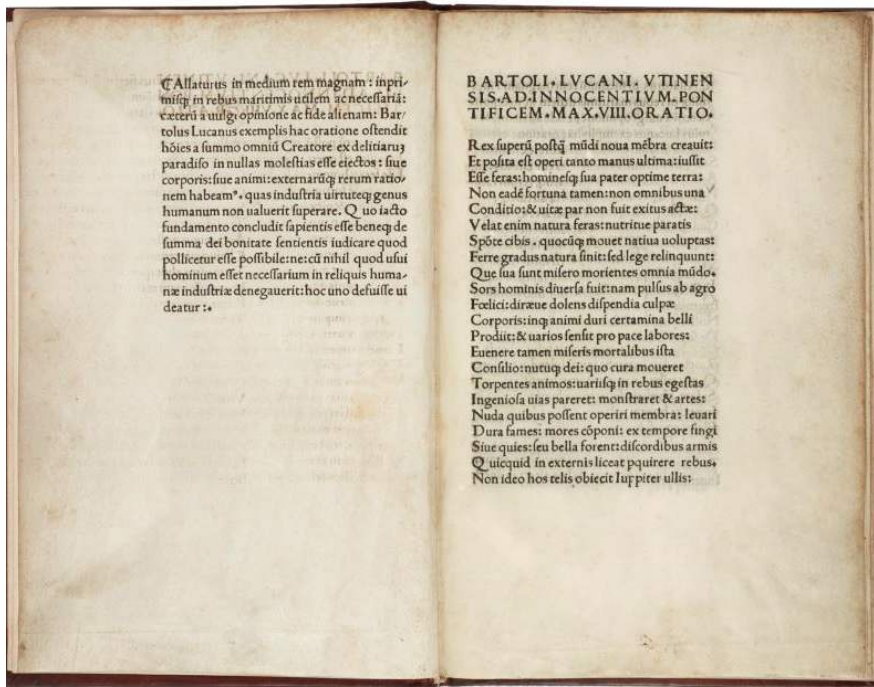 ⁋ Allaturus in medium rem magnam : inpri-
misq̃ in rebus maritimis utilem ac necessariã:
cæterũ a uulgi opinione ac fide alienam: Bar-
tolus Lucanus exemplis hac oratione ostendit
hõies a summo omniũ Creatore ex delitiaruʒ
paradiso in nullas molestias esse eiectos : siue
corporis: siue animi: externarũq; rerum ratio-
nem habeamꝰ. quas industria uirtuteq; genus
humanum non ualuerit superare. Quo iacto
fundamento concludit sapientis esse beneq; de
summa dei bonitate sentientis iudicare quod
pollicetur esse possibile: ne: cũ nihil quod usui
hominum esset necessarium in reliquis huma-
næ industriæ denegauerit: hoc uno defuisse ui
deatur :.
BARTOLI. LVCANI. VTINEN
SIS. AD. INNOCENTIVM. PON
TIFICEM. MAX. VIII. ORATIO.
Rex superũ postq̃ mũdi noua mẽbra creauit:
Et posita est operi tanto manus ultima: iussit
Esse feras: hominesq; sua pater optime terra:
Non eadẽ fortuna tamen: non omnibus una
Conditio: & uitæ par non fuit exitus actæ:
Velat enim natura feras: nutritue paratis
Spõte cibis. quocũq; mouet natiua uoluptas:
Ferre gradus natura sinit: sed lege relinquunt:
Que sua sunt misero morientes omnia mũdo.
Sors hominis diuersa fuit: nam pulsus ab agro
Fœlici: diræue dolens dispendia culpæ
Corporis: inq; animi duri certamina belli
Prodiit: & uarios sensit pro pace labores:
Euenere tamen miseris mortalibus ista
Consilio: nutuq; dei: quo cura moueret
Torpentes animos: uariisq; in rebus egestas
Ingeniosa uias pareret: monstraret & artes:
Nuda quibus possent operiri membra: leuari
Dura fames: mores cõponi: ex tempore fingi
Siue quies: seu bella forent: discordibus armis
Quicquid in externis liceat ꝑquirere rebus.
Non ideo hos telis obiecit Iuppiter ullis: